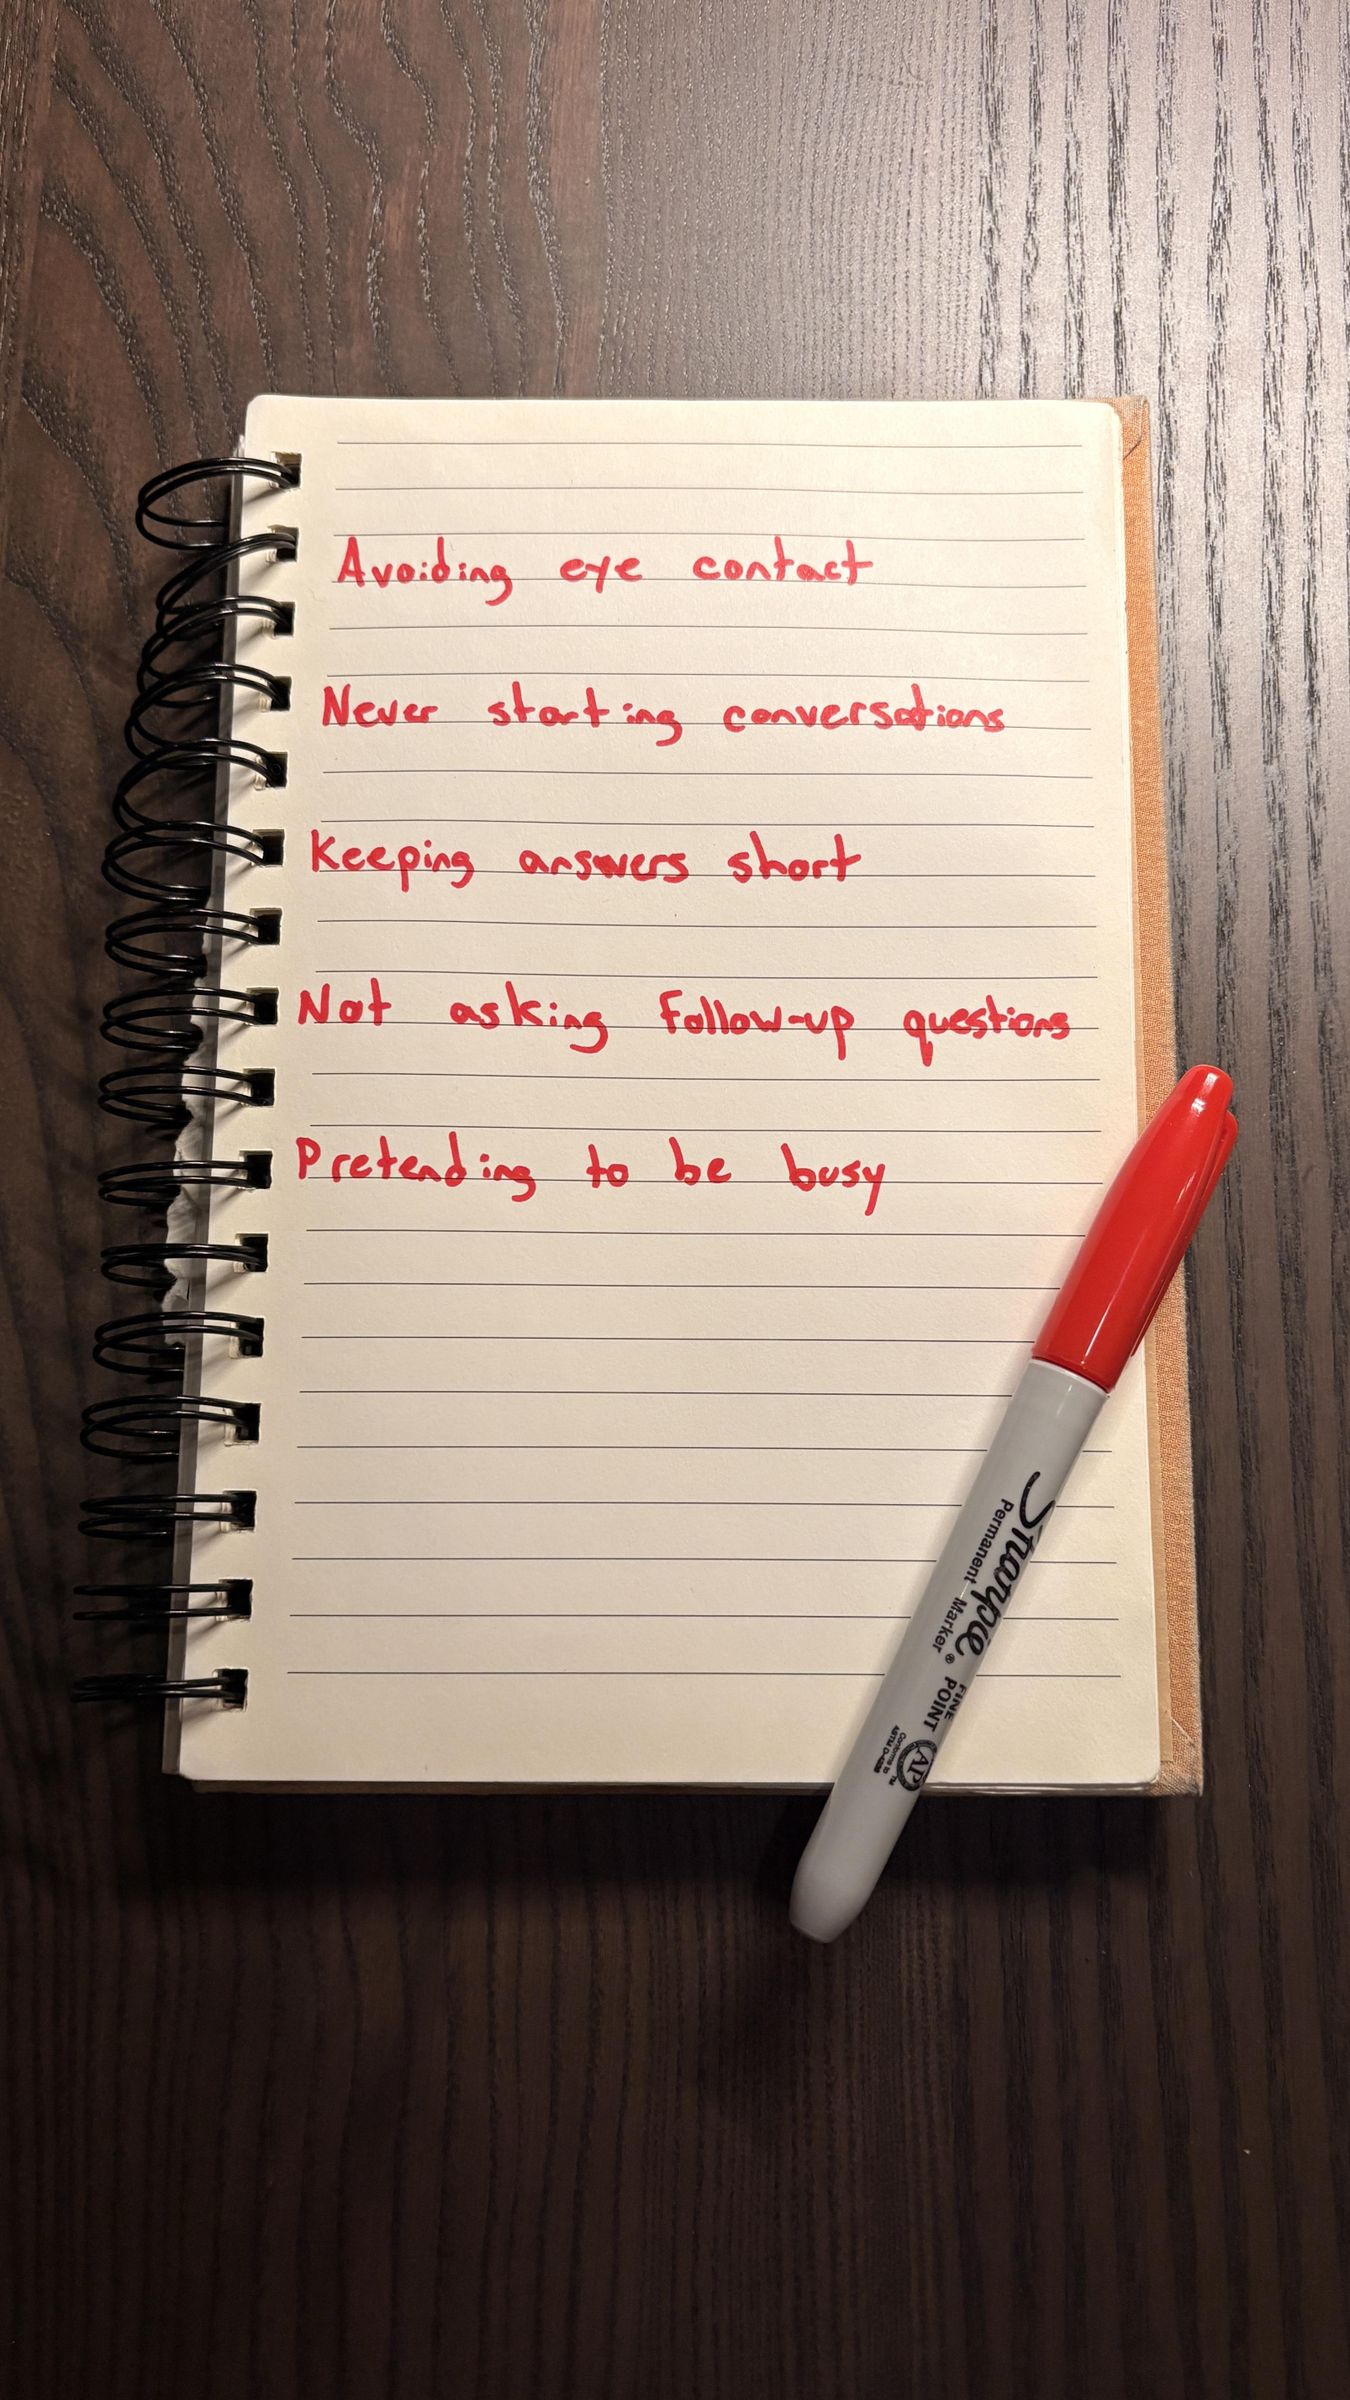 Avoiding eye contact
Never starting conversations
Keeping answers short
Not asking follow-up questions
Pretending to be busy
Sharpie
Permanent Marker®
FINE
POINT
AP
Conforms to
ASTM D-4236